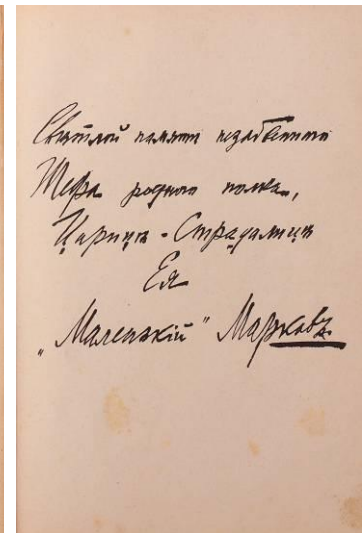 Свѣтлой памяти незабвеннаго
Шефа родного полка,
Царицѣ - Страдалицѣ
Ея
"Маленькій" Марковъ.